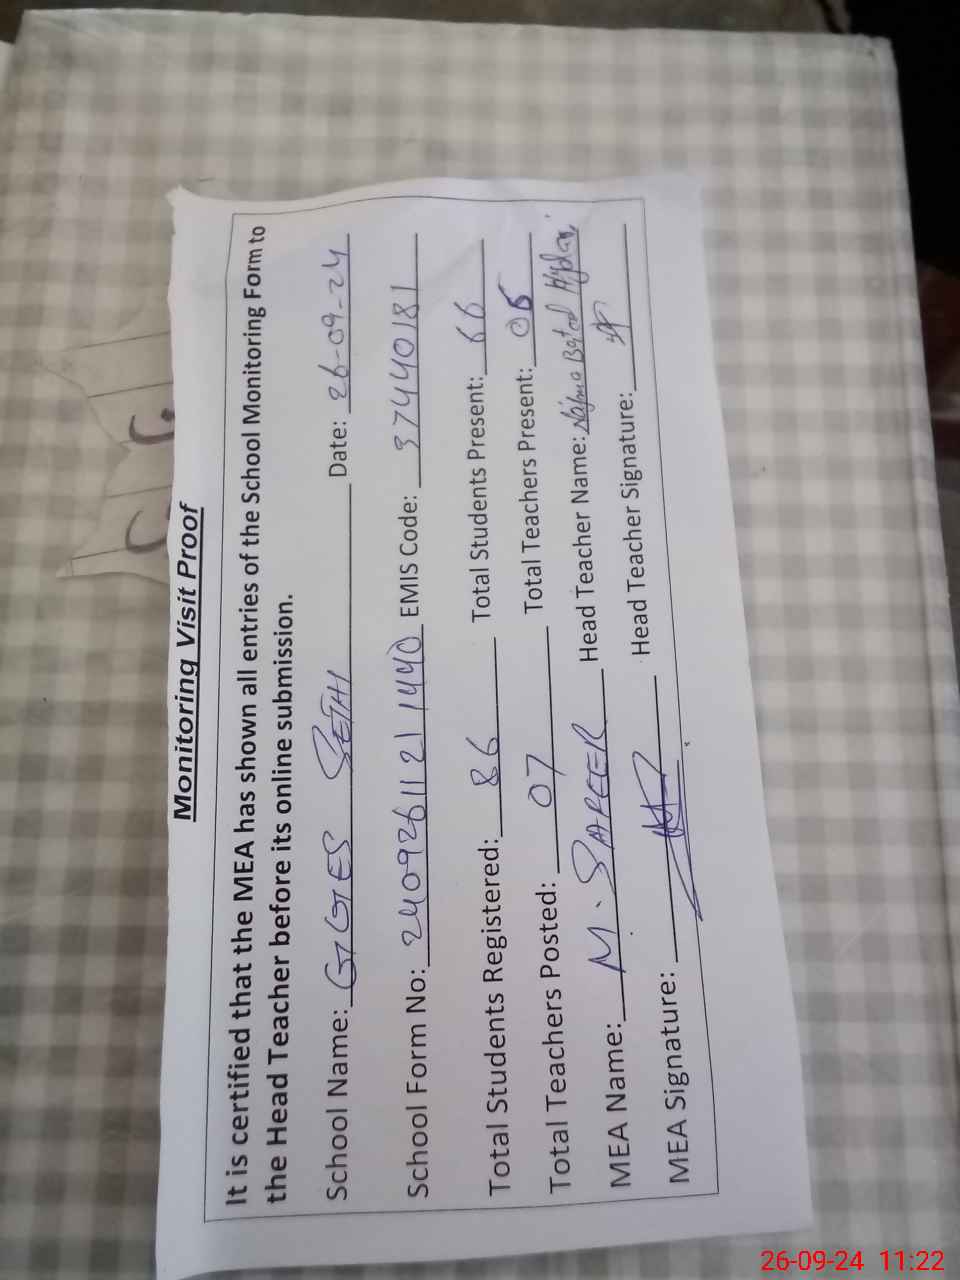 Monitoring Visit Proof
It is certified that the MEA has shown all entries of the School Monitoring Form to
the Head Teacher before its online submission.
School Name: GGES SETHI Date: 26-09-24
School Form No: 24092611211440 EMIS Code: 37440181
Total Students Registered: 86 Total Students Present: 66
Total Teachers Posted: 07 Total Teachers Present: 05
MEA Name: M. SAFEER Head Teacher Name: Najma Batool
MEA Signature: Head Teacher Signature:
26-09-24 11:22